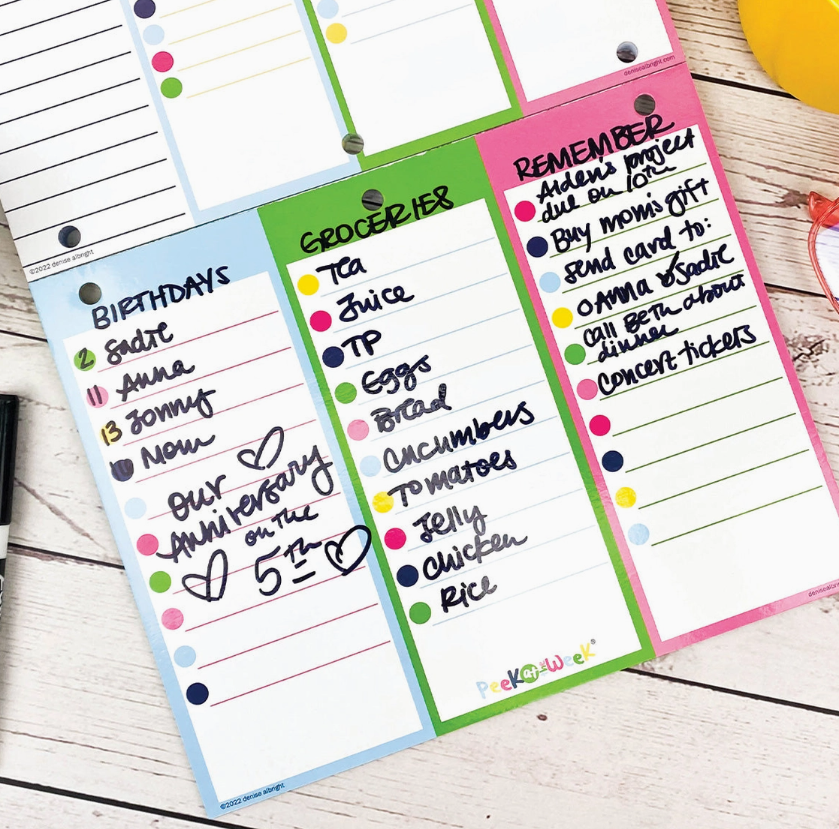 denisealbright.com
©2022 denise albright
BIRTHDAYS
2 Sadie
11 Anna
13 Jonny
Mom
OUR
Anniversary
on the
5th
©2022 denise albright
GROCERIES
Tea
Juice
TP
Eggs
Bread
Cucumbers
Tomatoes
Jelly
Chicken
Rice
Peek at the Week®
REMEMBER
Aiden's project
due on 10th
Buy mom's gift
Send card to:
O Anna ✓Sadie
Call Beth about
dinner
Concert tickets